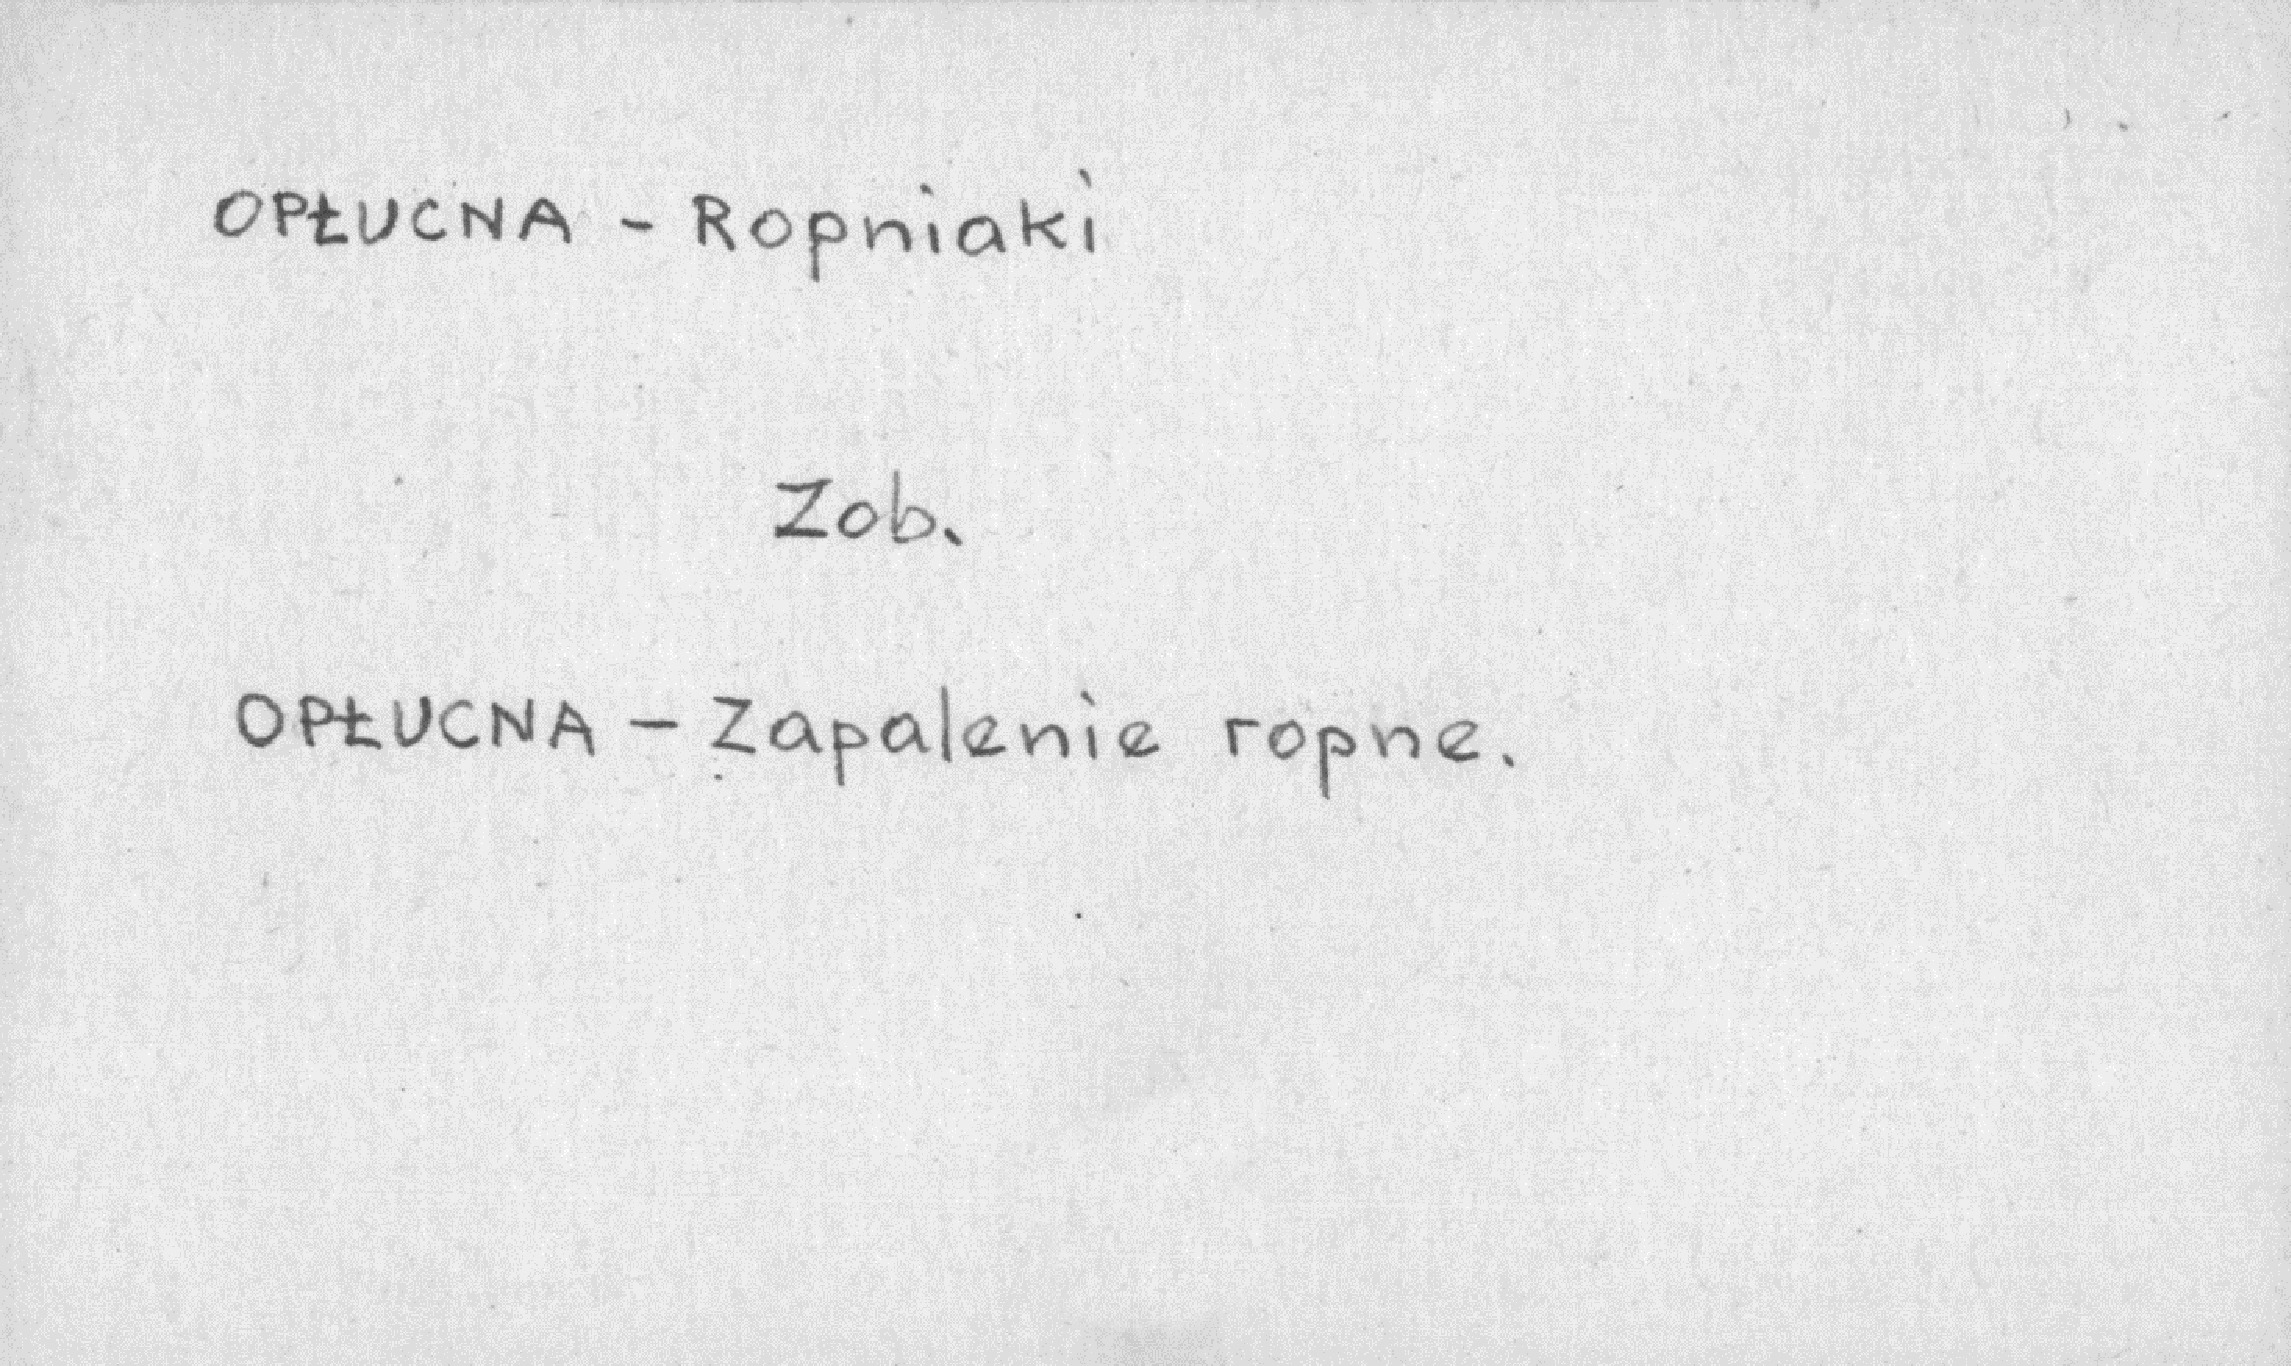 OPŁUCNA - Ropniaki
Zob.
OPŁUCNA - Zapalenie ropne.